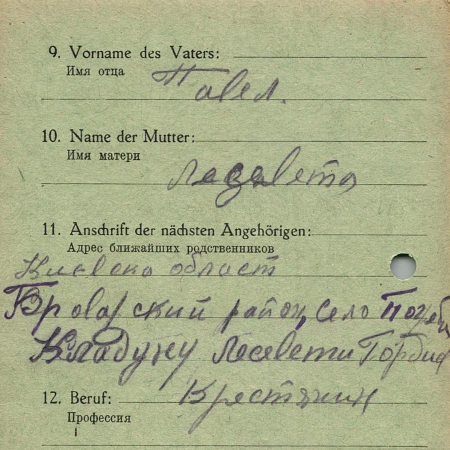 9. Vorname des Vaters:
Имя отца
Павел.
10. Name der Mutter:
Имя матери
Лезавета
11. Anschrift der nächsten Angehörigen:
Адрес ближайших родственников
Киевска област
Броварский район, село
Лесавети
12. Beruf:
Крестянин
Профессия